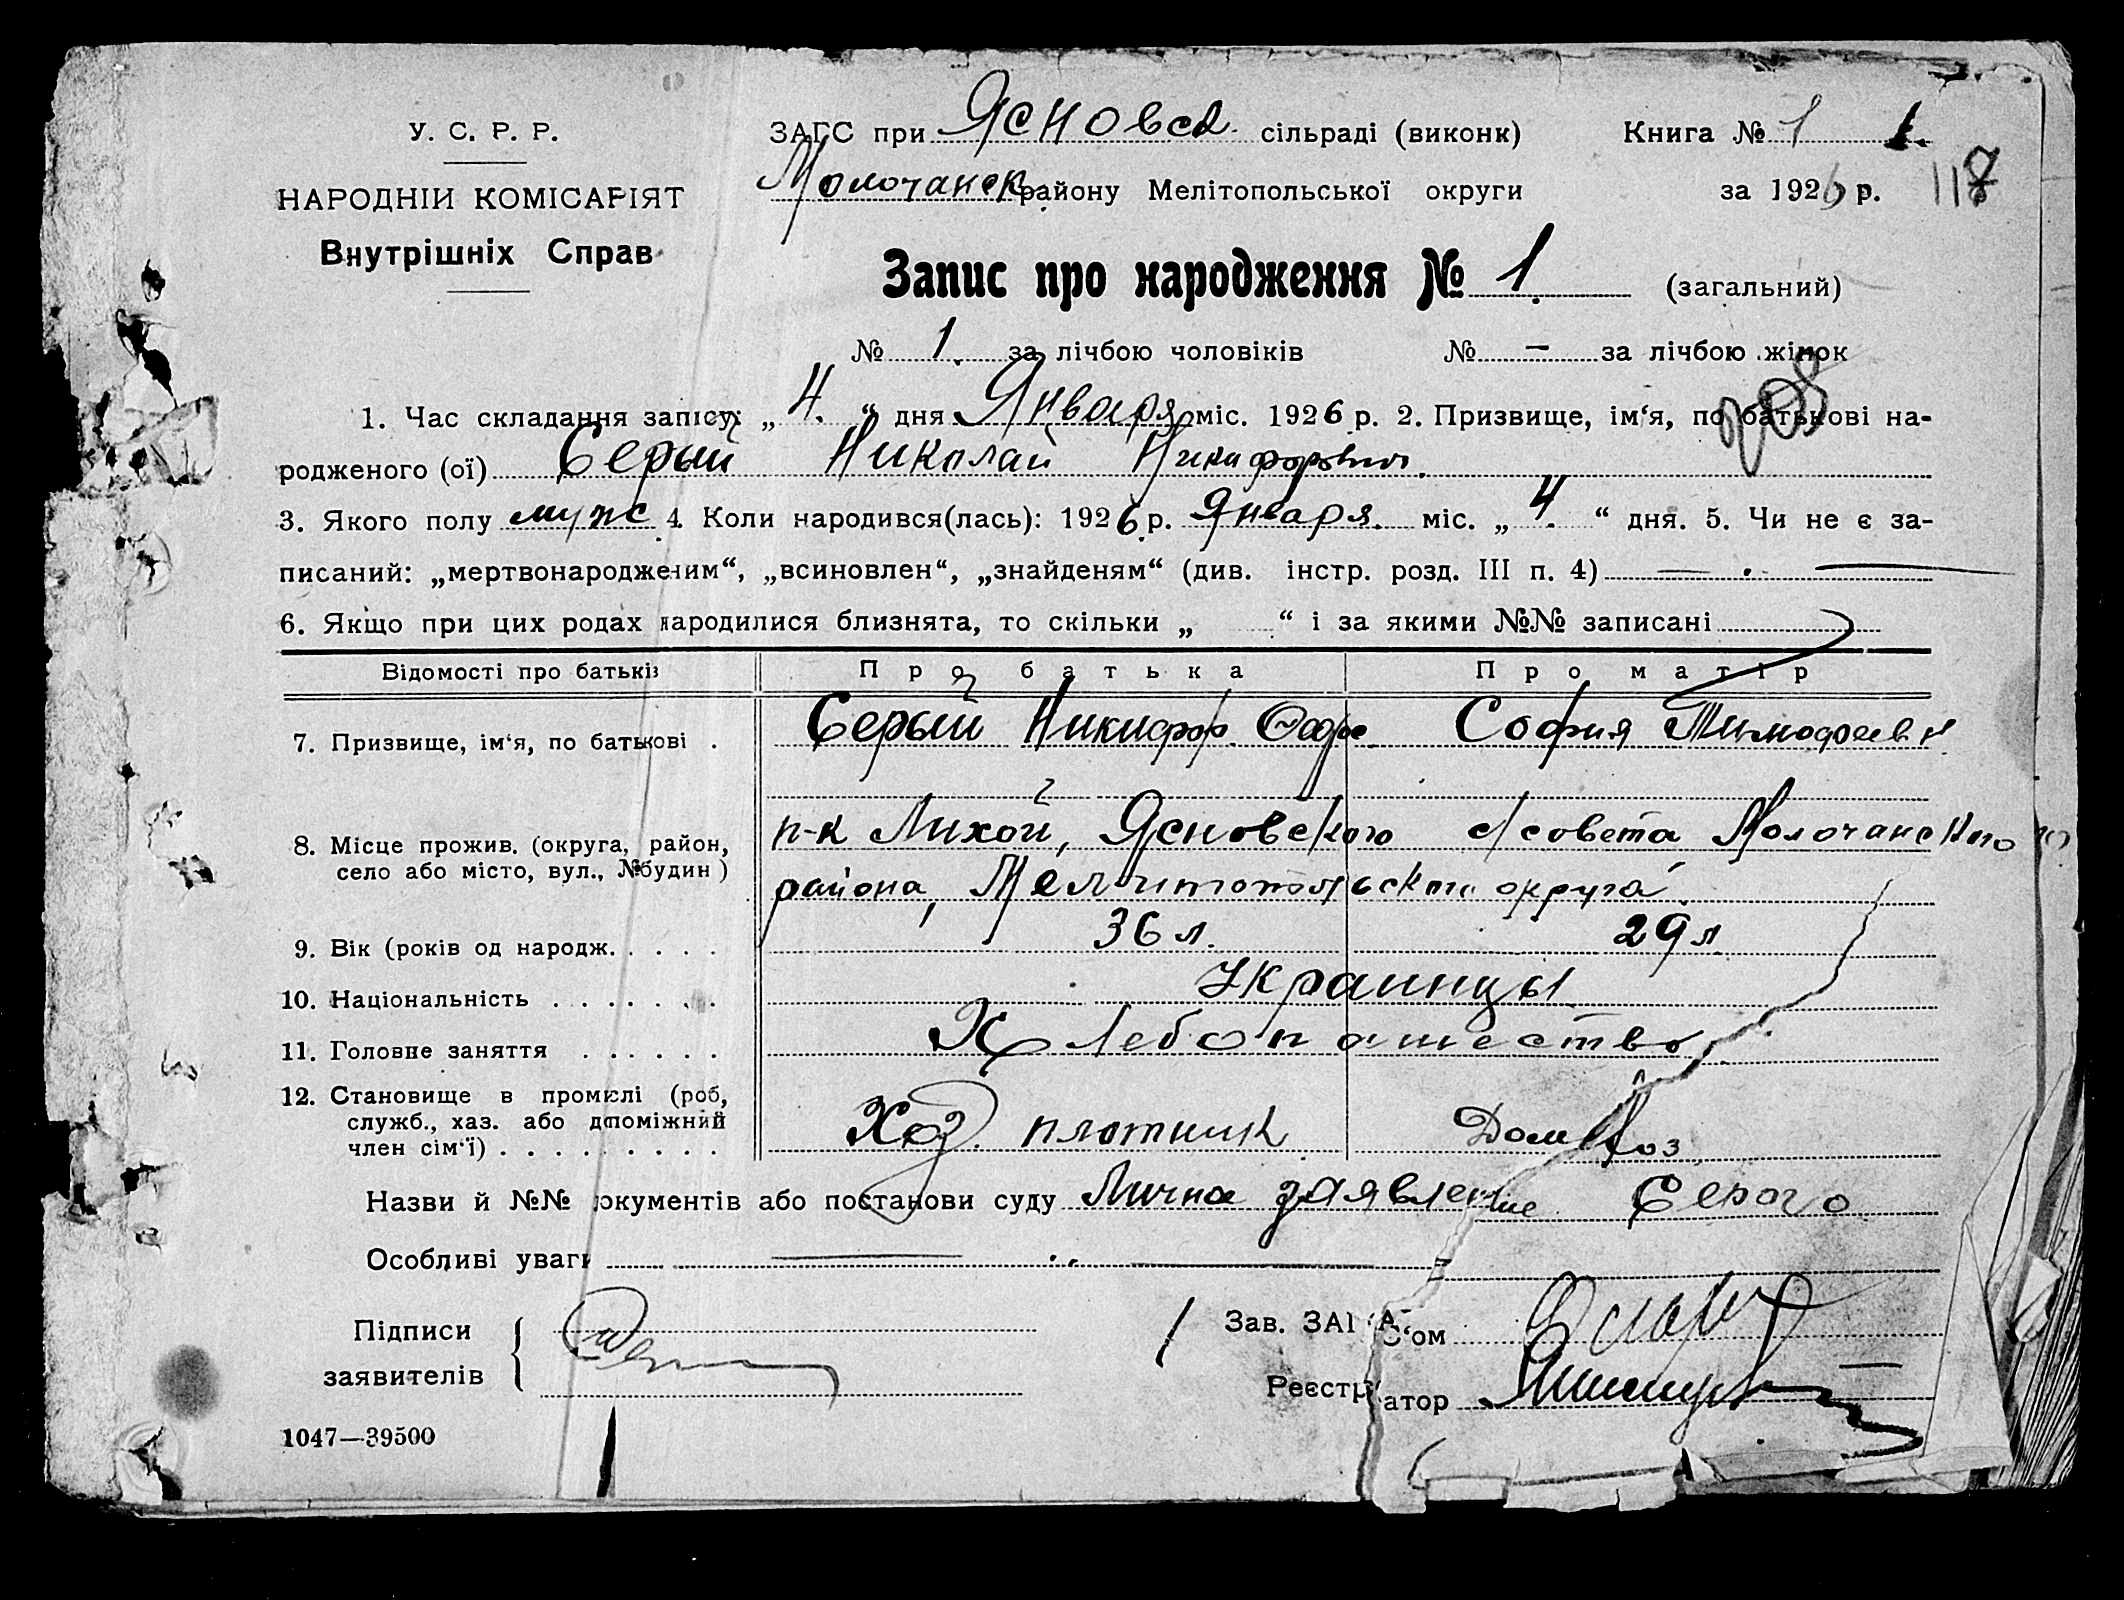 У. С. Р. Р.
НАРОДНІЙ КОМІСАРІЯТ
Внутрішніх Справ
ЗАГС при Ясновск. сільраді (виконк) Книга № 1 1.
Молочанск району Мелітопольської округи за 1926 р. 118
Запис про народження № 1. (загальний)
№ 1. за лічбою чоловіків № — за лічбою жінок
1. Час складання запису: „ 4. “ дня Января міс. 1926 р. 2. Призвище, ім‘я, по батькові на-
родженого (ої) Серый Николай Никифорович.
3. Якого полу муж. 4. Коли народився(лась): 1926 р. Января. міс. „ 4. “ дня. 5. Чи не є за-
писаний: „мертвонародженим“, „всиновлен“, „знайденям“ (див. інстр. розд. III п. 4) —
6. Якщо при цих родах народилися близнята, то скільки „ “ і за якими №№ записані
Відомості про батьків Про батька Про матір
7. Призвище, ім‘я, по батькові . Серый Никифор София Тимофеевн
8. Місце прожив. (округа, район, п-к Лихой, Ясновского с/совета Молочанского
село або місто, вул., № будин) района, Мелитопольского округа
9. Вік (років од народж. . . . . 36 л. 29 л
10. Національність . . . . . . Украинцы
11. Головне заняття . . . . . . Хлебопашество
12. Становище в промислі (роб,
служб., хаз. або допоміжний Хоз. плотник Дом Хоз
член сім‘ї) . . . . . . . . .
Назви й №№ документів або постанови суду Личное заявление Серого
Особливі уваги —
Підписи Зав. ЗАГС‘ом
заявителів Реєстратор
1047—39500